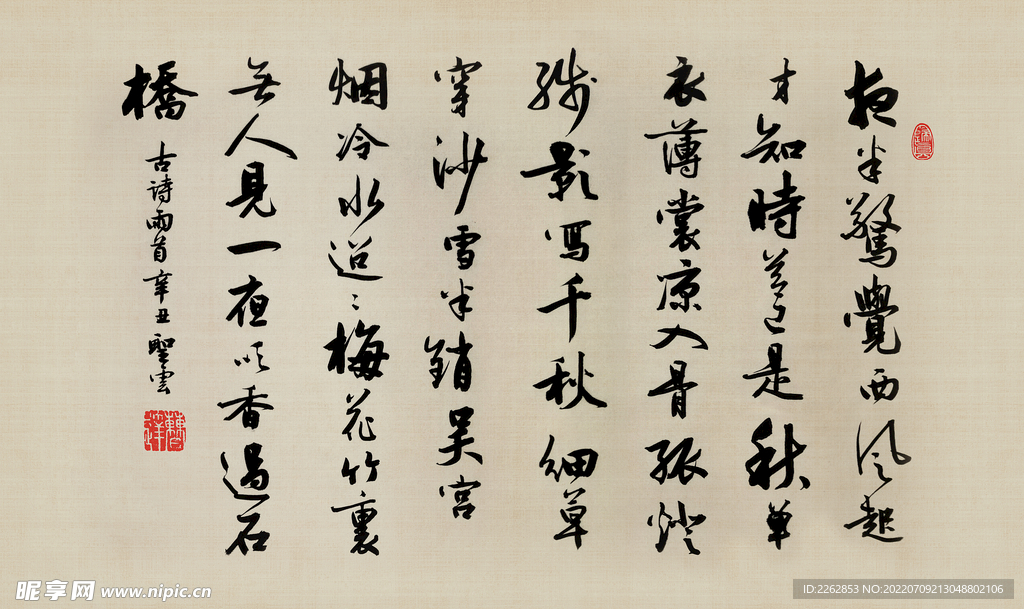 夜半驚覺西風起
才知時節已是秋單
衣薄裳凉入骨孤燈
残影寫千秋細草
穿沙雪半銷吴宫
烟冷水迢〻梅花竹裏
無人見一夜吹香過石
橋
古詩兩首辛丑聖雲
昵享网 www.nipic.cn
ID:2262853 NO:20220709213048802106